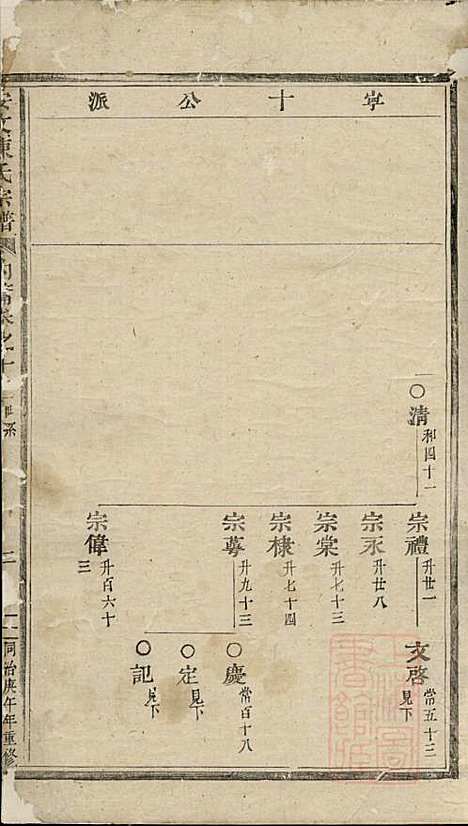 寕十公派
○清 和四十一
宗禮 升廿一
宗永 升廿八
宗棠 升七十三
宗棣 升七十四
宗蓴 升九十三
宗偉 升百六十三
文啓 常五十三 見下
○慶 常百十八
○定 見下
○記 見下
陳氏宗譜
同治庚午年重修